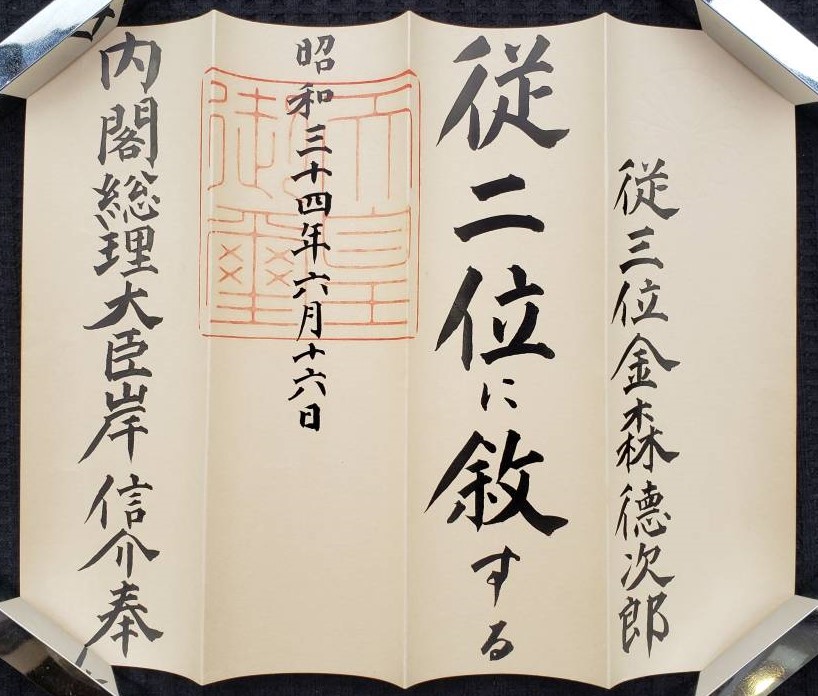 従三位金森德次郎
従二位に敘する
昭和三十四年六月十六日
天皇御璽
内閣総理大臣岸信介奉